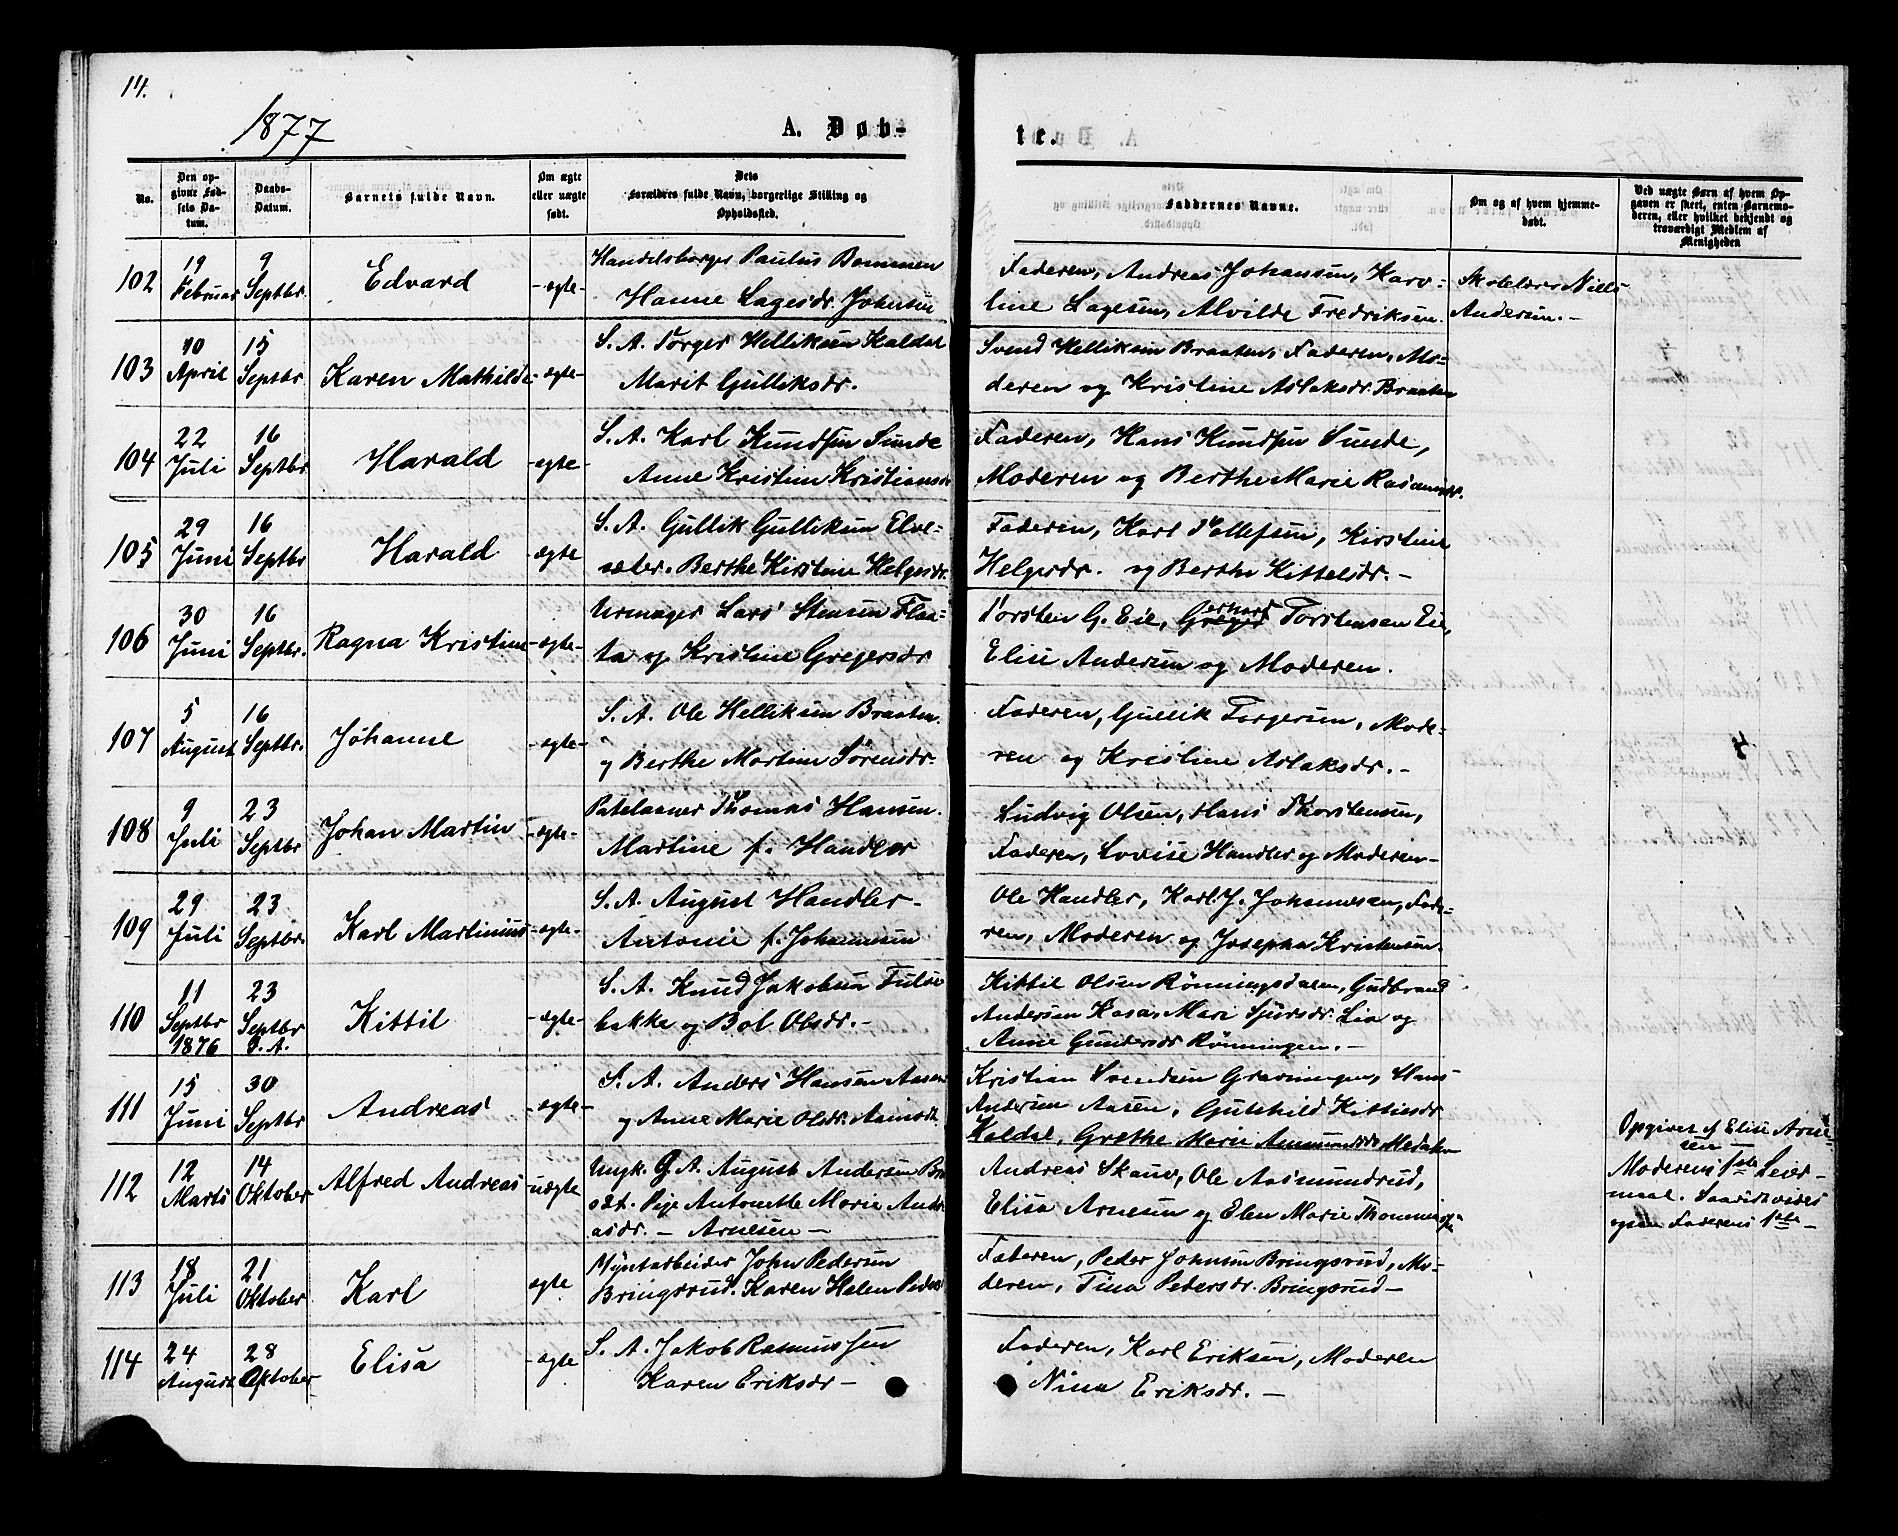 14.
1877
A. Døb-
te.
No.
Den op-
givne Fød-
sels Da-
tum.
Daabs-
Datum.
Barnets fulde Navn.
Om ægte
eller uægte
født.
Dets
Forældres fulde Navn, borgerlige Stilling og
Opholdssted.
Faddernes Navne.
Om og af hvem hjemme-
døbt.
Ved uægte Børn af hvem Op-
gaven er skeet, enten Barnemo-
deren, eller hvilket bekjendt og
troværdigt Medlem af
Menigheden
102
19
Februar
9
Septbr.
Edvard
-ægte-
Handelsborger Paulus Bommen
Hanne Lagesdr. Johnsen
Faderen, Andreas Johansen, Karo-
line Lagesen, Alvilde Fredriksen.
Skolelærer Niels
Andersen.-
103
10
April
15
Septbr
Karen Mathilde
-ægte-
S. A. Torger Helliksen Kaldal
Marit Gulliksdr.
Svend Helliksen Braaten, Faderen, Mo-
deren og Kristine Aslaksdr. Braaten
104
22
Juli
16
Septbr
Harald
-ægte-
S. A. Karl Knudsen Sunde
Anne Kristine Kristiansdr
Faderen, Hans Knudsen Sunde,
Moderen og Berthe Marie Rasmusdr.
105
29
Juni
16
Septbr
Harald
-ægte
S. A. Gullik Gulliksen Elve-
sæter. Berthe Kirstine Helgesdr.
Faderen, Karl Tollefsen, Kirstine
Helgesdr. og Berthe Kittelsdr.-
106
30
Juni
16
Septbr.
Ragna Kristine
-ægte-
Urmager Lars Stensen Flaa-
ta og Kristine Gregersdr
Torsten G. Eie, Gregers Torstensen Eie,
erhard
Elise Andersen og Moderen.
107
5
August
16
Septbr.
Johanne
-ægte-
S. A. Ole Helliksen Braaten
og Berthe Martine Sørensdr.
Faderen, Gullik Torgersen, Mode-
ren og Kristine Aslaksdr.-
108
9
Juli
23
Septbr
Johan Martin
-ægte-
Thomas Hansen.
Martine f. Handler
Ludvig Olsen, Hans Thorstensen,
Faderen, Lovise Handler og Moderen-
109
29
Juli
23
Septbr.
Karl Martinius
-ægte-
S. A. August Handler-
Antonie f. Johannesen
Ole Handler, Karl J. Johannesen, Fade-
ren, Moderen og Josepha Kristensen.
110
11
Septbr
1876
23
Septbr
Kittil
-ægte-
S. A. Knud Jakobsen Fulse
bakke og Bol Olsdr.-
Kittil Olsen Rønningsdalen, Gudbrand
Andersen Kasa, Mari Sjursdr. Lia og
Anne Gundersdr Rønningen.-
111
15
Juni
30
Septbr
Andreas
-ægte-
S. A. Anders Hansen Aasen
og Anne Marie Olsdr. Aamodt
Kristian Svendsen Gravningen, Hans
Andersen Aasen, Gulehild Kittilsdr
Kaldal, Grethe Marie Ammundsdr
112
12
Marts
14
Oktober
Alfred Andreas
-uægte
Ungk. G. A. August Andersen
Pige Antonette Marie Andre
asdr.- Arnesen-
Andreas Skauv, Ole Aasmundrud,
Elisa Arnesen og Elen Marie
Opgivet af Elise Arne
sen
Moderens 1ste Leier-
maal. Saavidt vides
ogsaa Faderens 1ste-
113
18
Juli
21
Oktober
Karl
ægte
Myntarbeider John Pedersen
Bringsrud. Karen Helene Peders
Faderen, Peder Johnsen Bringsrud, Mo-
deren, Tina Pedersdr. Bringsrud-
114
24
August
28
Oktober
Elisa
-ægte
S. A. Jakob Rasmussen
Karen Eriksdr-
Faderen, Karl Eriksen, Moderen
Nina Eriksdr.-